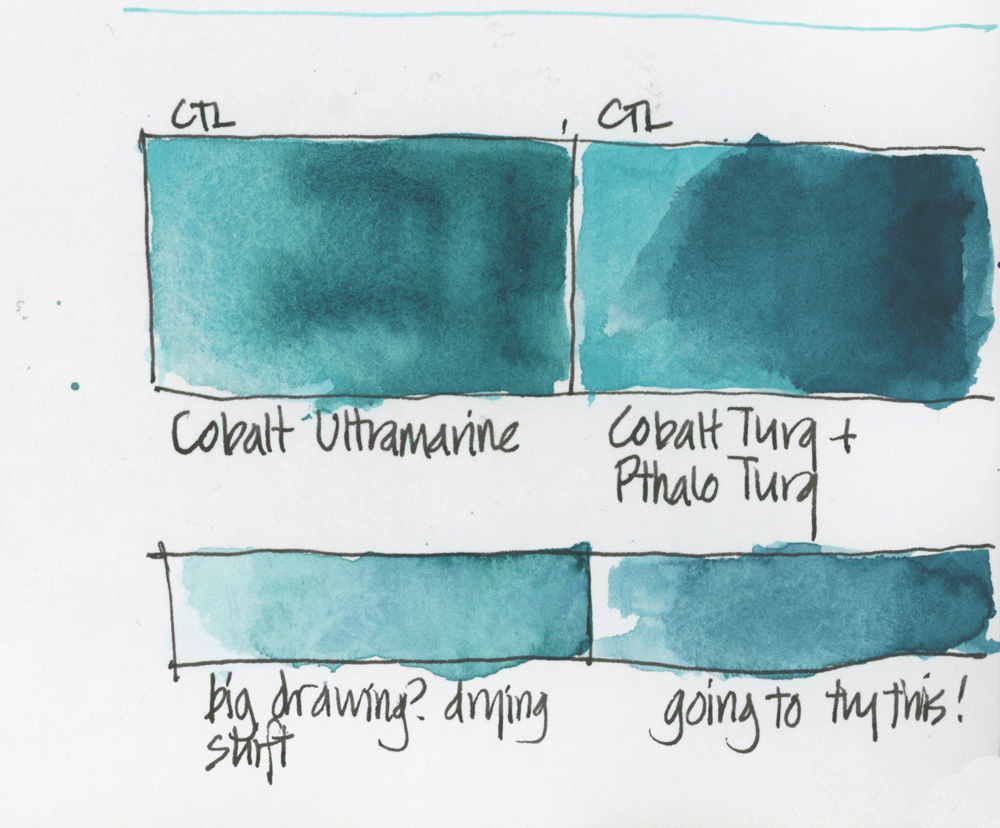 CTL
CTL
Cobalt Ultramarine
Cobalt Turq +
Pthalo Turq
big drawing? drying
shift
going to try this!